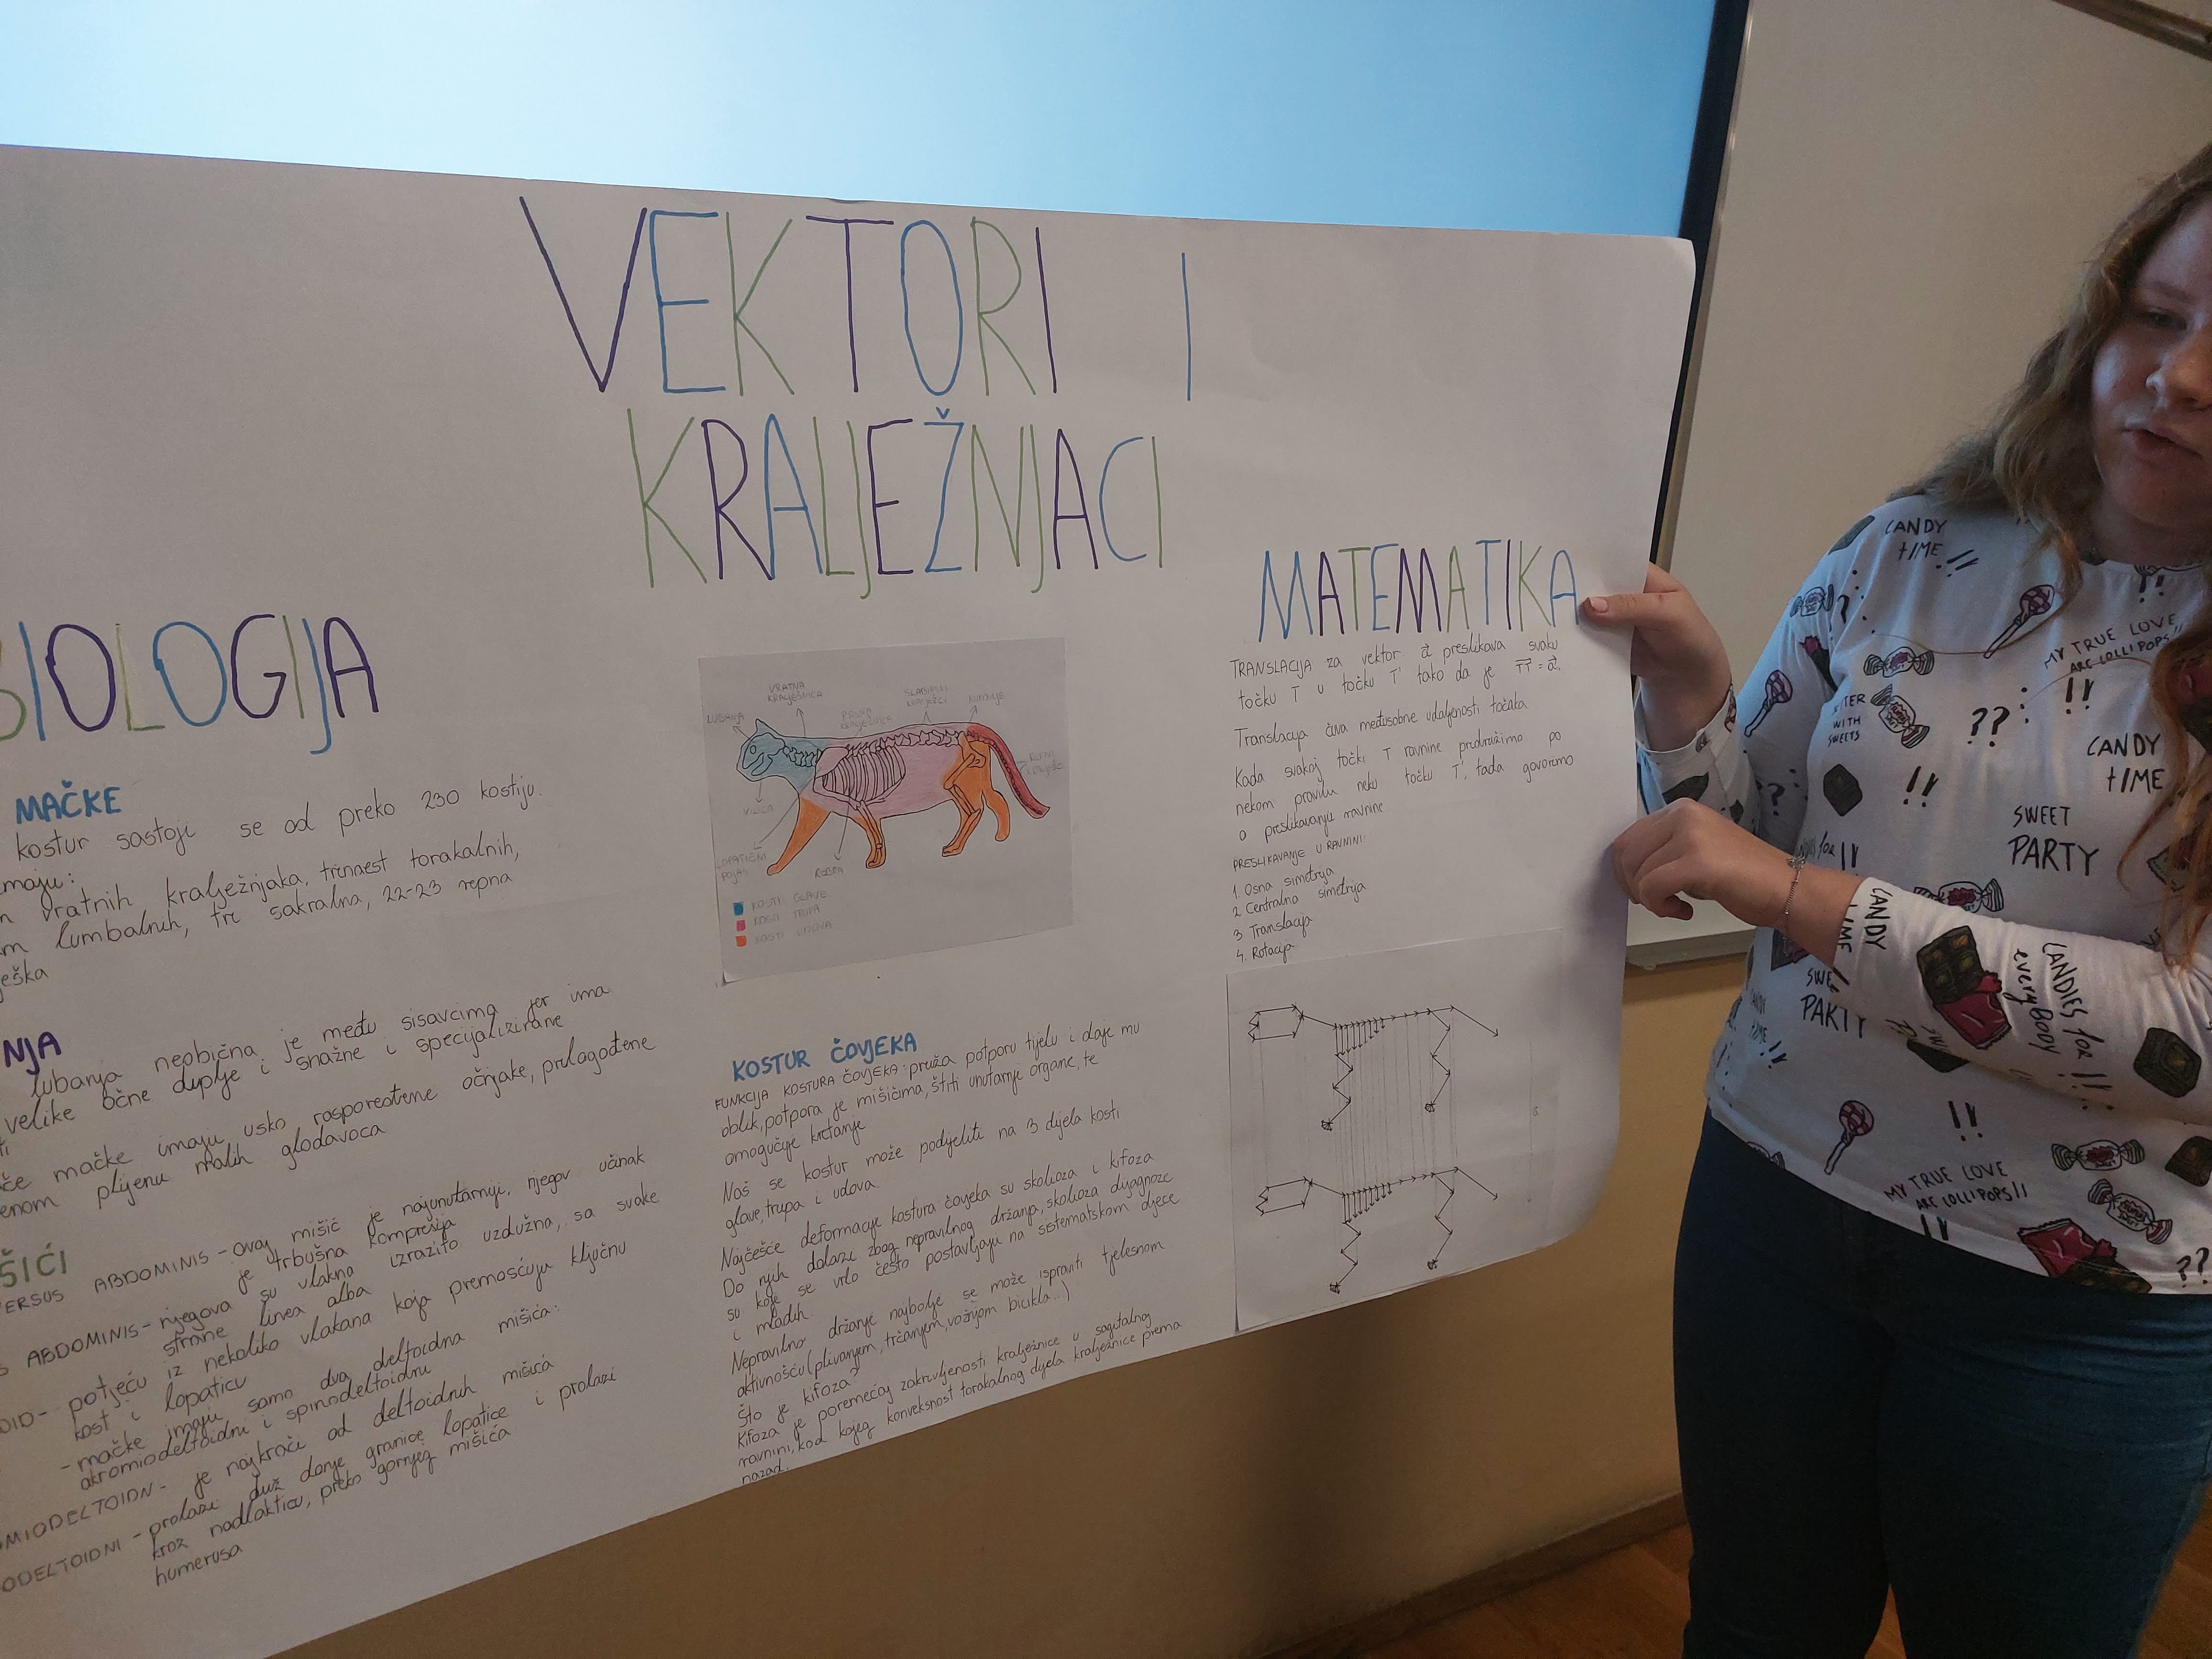 VEKTORI I
KRALJEŽNJACI
BIOLOGIJA
MAČKE
kostur sastoji se od preko 230 kostiju.
maju:
vratnih kralježnjaka, trinaest torakalnih,
m lumbalnih, tri sakralna, 22-23 repna
eška
NJA
lubanja neobična je među sisavcima jer ima
velike očne duplje i snažne i specijalizirane
ti
če mačke imaju usko raspoređene očnjake, prilagođene
enom plijenu malih glodavaca
ŠIĆI
ERSUS ABDOMINIS - ovaj mišić je najunutarnji, njegov učinak
je trbušna kompresija
S ABDOMINIS - njegova su vlakna izrazito uzdužna, sa svake
strane linea alba
OID - potječu iz nekoliko vlakana koja premošćuju ključnu
kost i lopaticu
- mačke imaju samo dva deltoidna mišića:
akromiodeltoidni i spinodeltoidni
MIODELTOIDN - je najkraći od deltoidnih mišića
ODELTOIDNI - prolazi duž donje granice lopatice i prolazi
kroz nadlakticu, preko gornjeg mišića
humerusa
LUBANJA
VRATNA
KRALJEŠNICA
PRSNA
KRALJEŠNICA
SLABINSKI
KRALJEŠCI
LOPATIČNI
POJAS
REBRA
KOSTI GLAVE
KOSTI TRUPA
KOSTI UDOVA
KOSTUR ČOVJEKA
FUNKCIJA KOSTURA ČOVJEKA: pruža potporu tijelu i daje mu
oblik, potpora je mišićima, štiti unutarnje organe, te
omogućuje kretanje
Naš se kostur može podijeliti na 3 dijela kosti
glave, trupa i udova
Najčešće deformacije kostura čovjeka su skolioza i kifoza
Do njih dolazi zbog nepravilnog držanja, skolioza dijagnoze
su koje se vrlo često postavljaju na sistematskom djece
i mladih
Nepravilno držanje najbolje se može ispraviti tjelesnom
aktivnošću (plivanjem, trčanjem, vožnjom bicikla...)
Što je kifoza?
Kifoza je poremećaj zakrivljenosti kralježnice u sagitalnoj
ravnini, kod kojeg konveksnost torakalnog dijela kralježnice prema
nazad.
MATEMATIKA
TRANSLACIJA za vektor a⃗ preslikava svaku
točku T u točku T' tako da je TT' = a⃗.
Translacija čuva međusobne udaljenosti točaka
Kada svakoj točki T ravnine pridružimo po
nekom pravilu neku točku T', tada govorimo
o preslikavanju ravnine
PRESLIKAVANJE U RAVNINI:
1. Osna simetrija
2 Centralna simetrija
3 Translacija
4. Rotacija
CANDY
tIME !!
MY TRUE LOVE
ARE LOLLIPOPS!!
WITH
SWEETS
??
!!
CANDY
tIME
SWEET
PARTY
CANDY
CANDIES for !!
everyBODY
SWE
PARTY
MY TRUE LOVE
ARE LOLLIPOPS!!
??